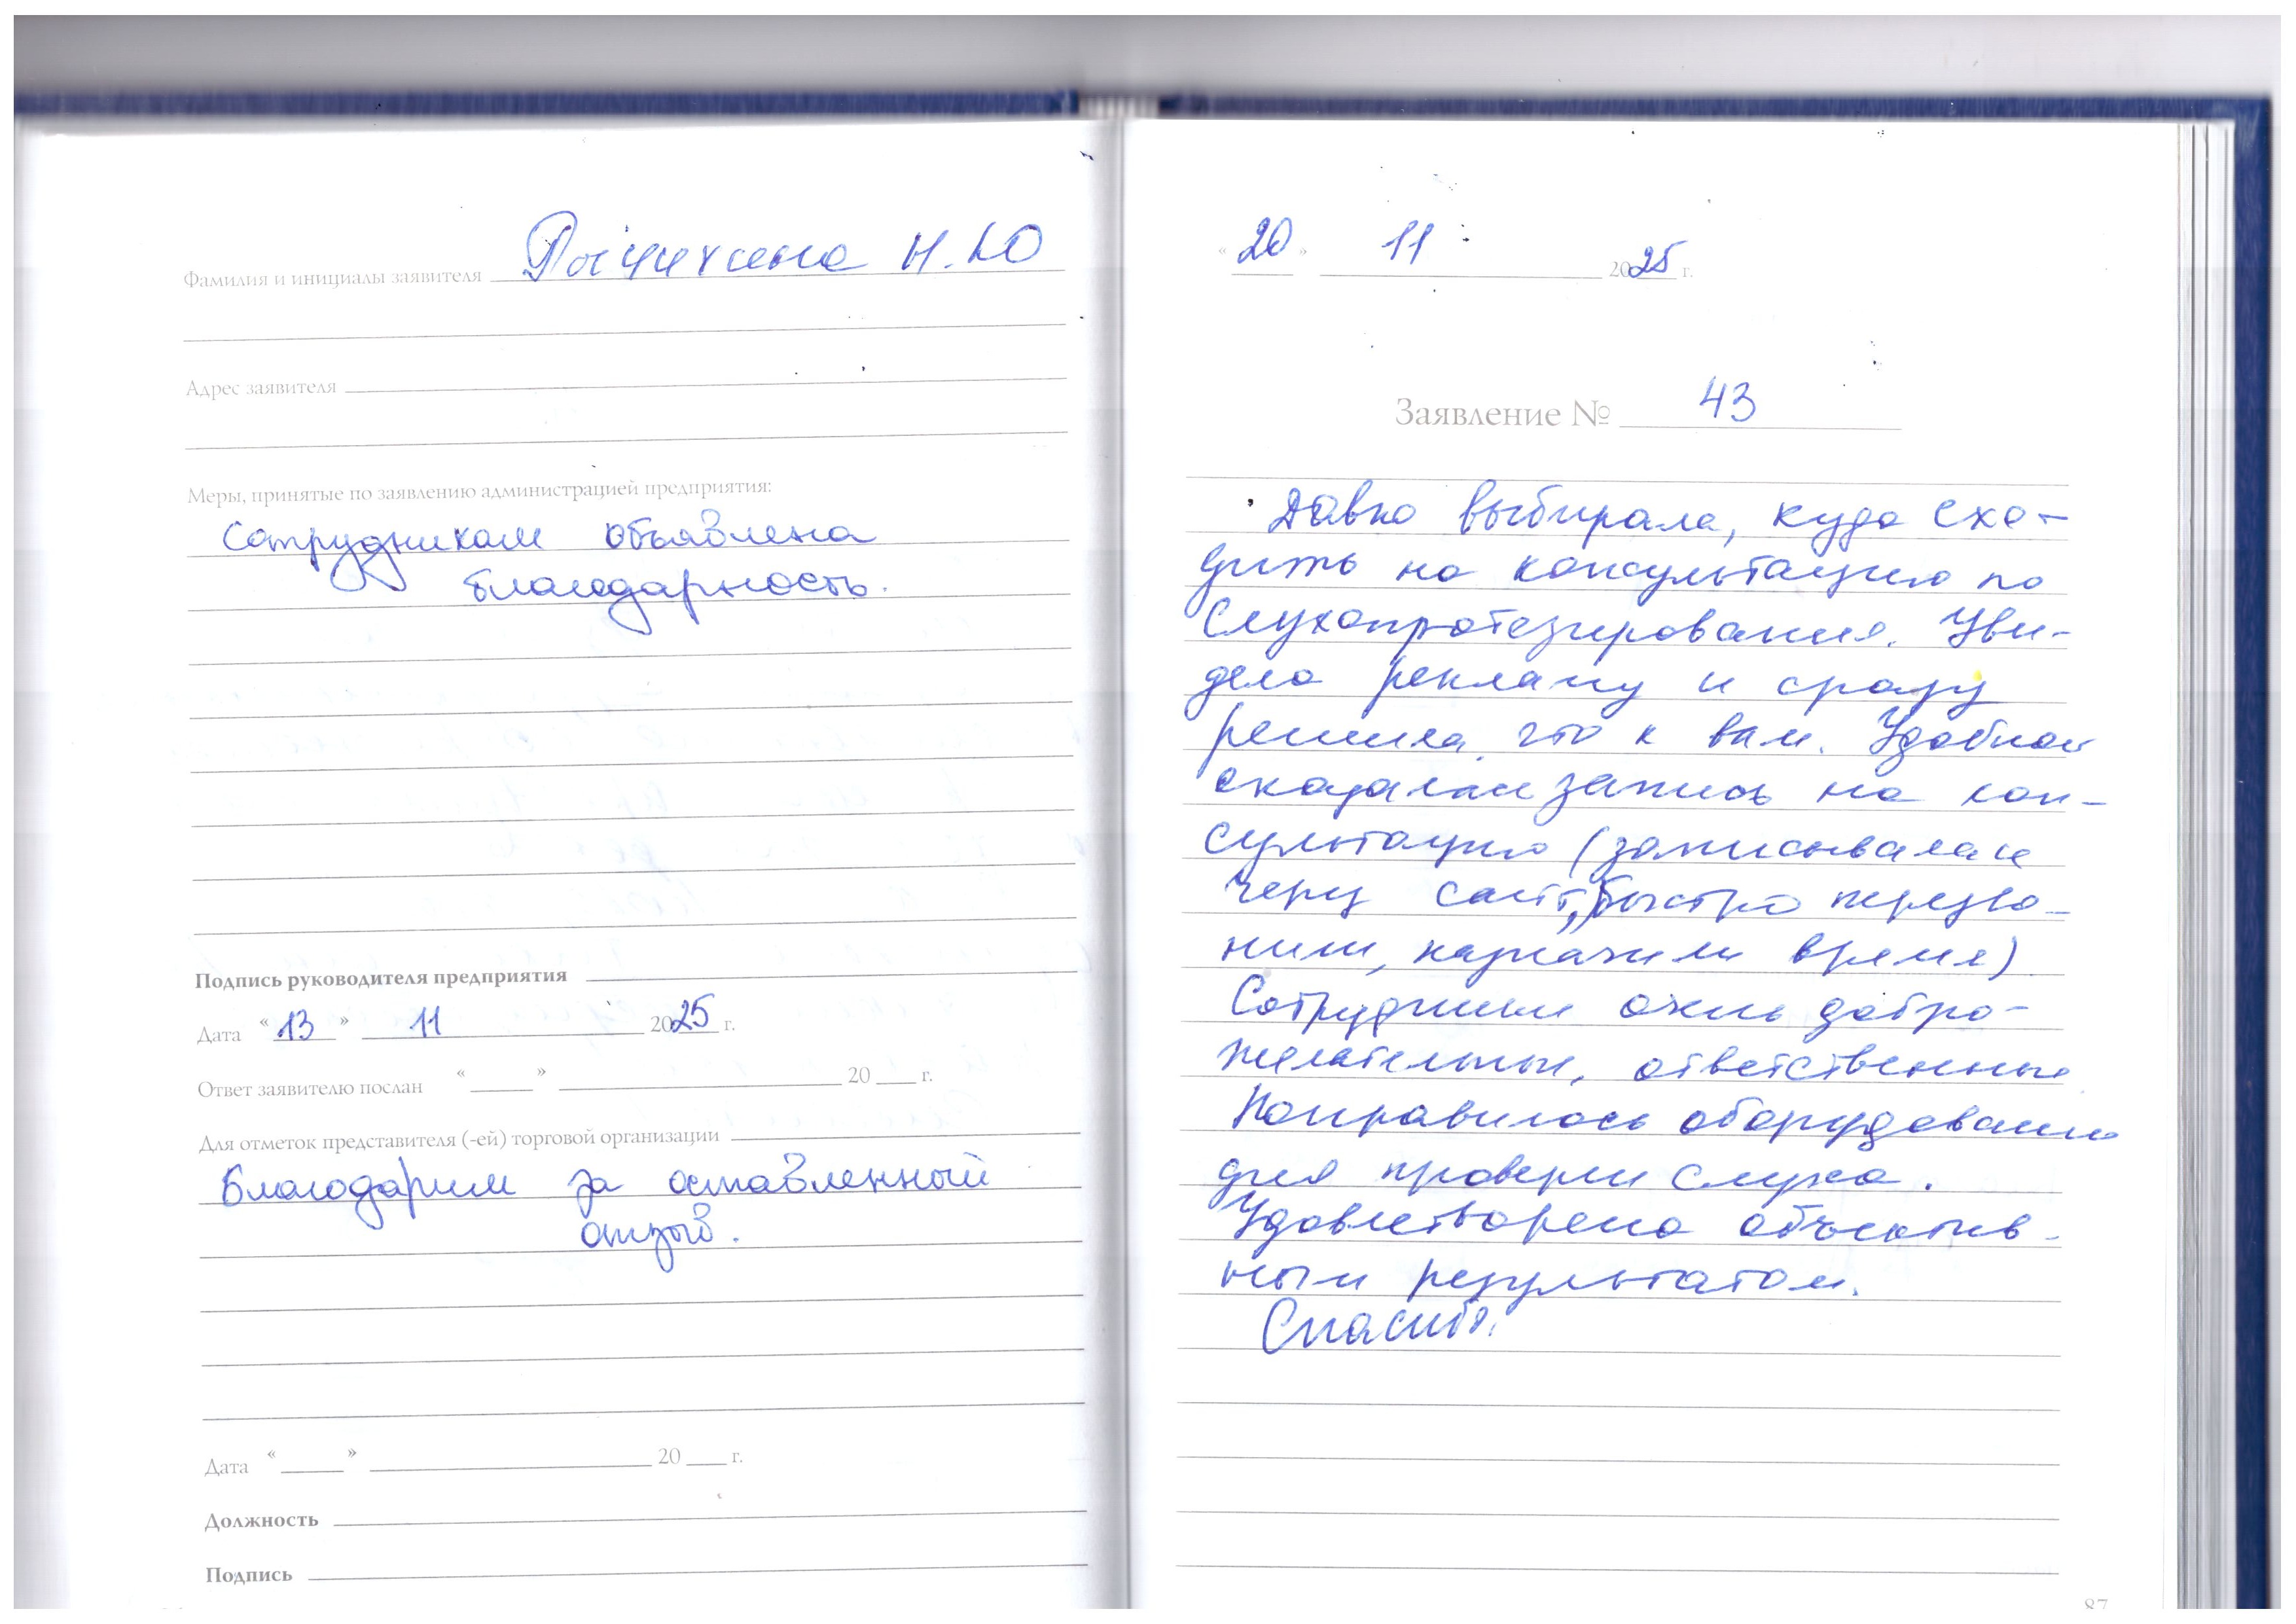 Фамилия и инициалы заявителя Н.Ю
Адрес заявителя
Меры, принятые по заявлению администрацией предприятия:
Сотрудникам объявлена
благодарность.
Подпись руководителя предприятия
Дата «13» 11 2025 г.
Ответ заявителю послан « » 20 г.
Для отметок представителя (-ей) торговой организации
Благодарим за оставленный
отзыв.
Дата « » 20 г.
Должность
Подпись
«20» 11 2025 г.
Заявление № 43
Давно выбирала, куда схо-
дить на консультацию по
слухопротезирования. Уви-
дела рекламу и сразу
решила, что к вам. Удобной
оказалась запись на кон-
сультацию (записывалась
через сайт, быстро перезво-
нили, назначили время)
Сотрудники очень добро-
желательные, ответственные
Понравилось оборудование
для проверки слуха.
Удовлетворена объектив-
ным результатом.
Спасибо.
87